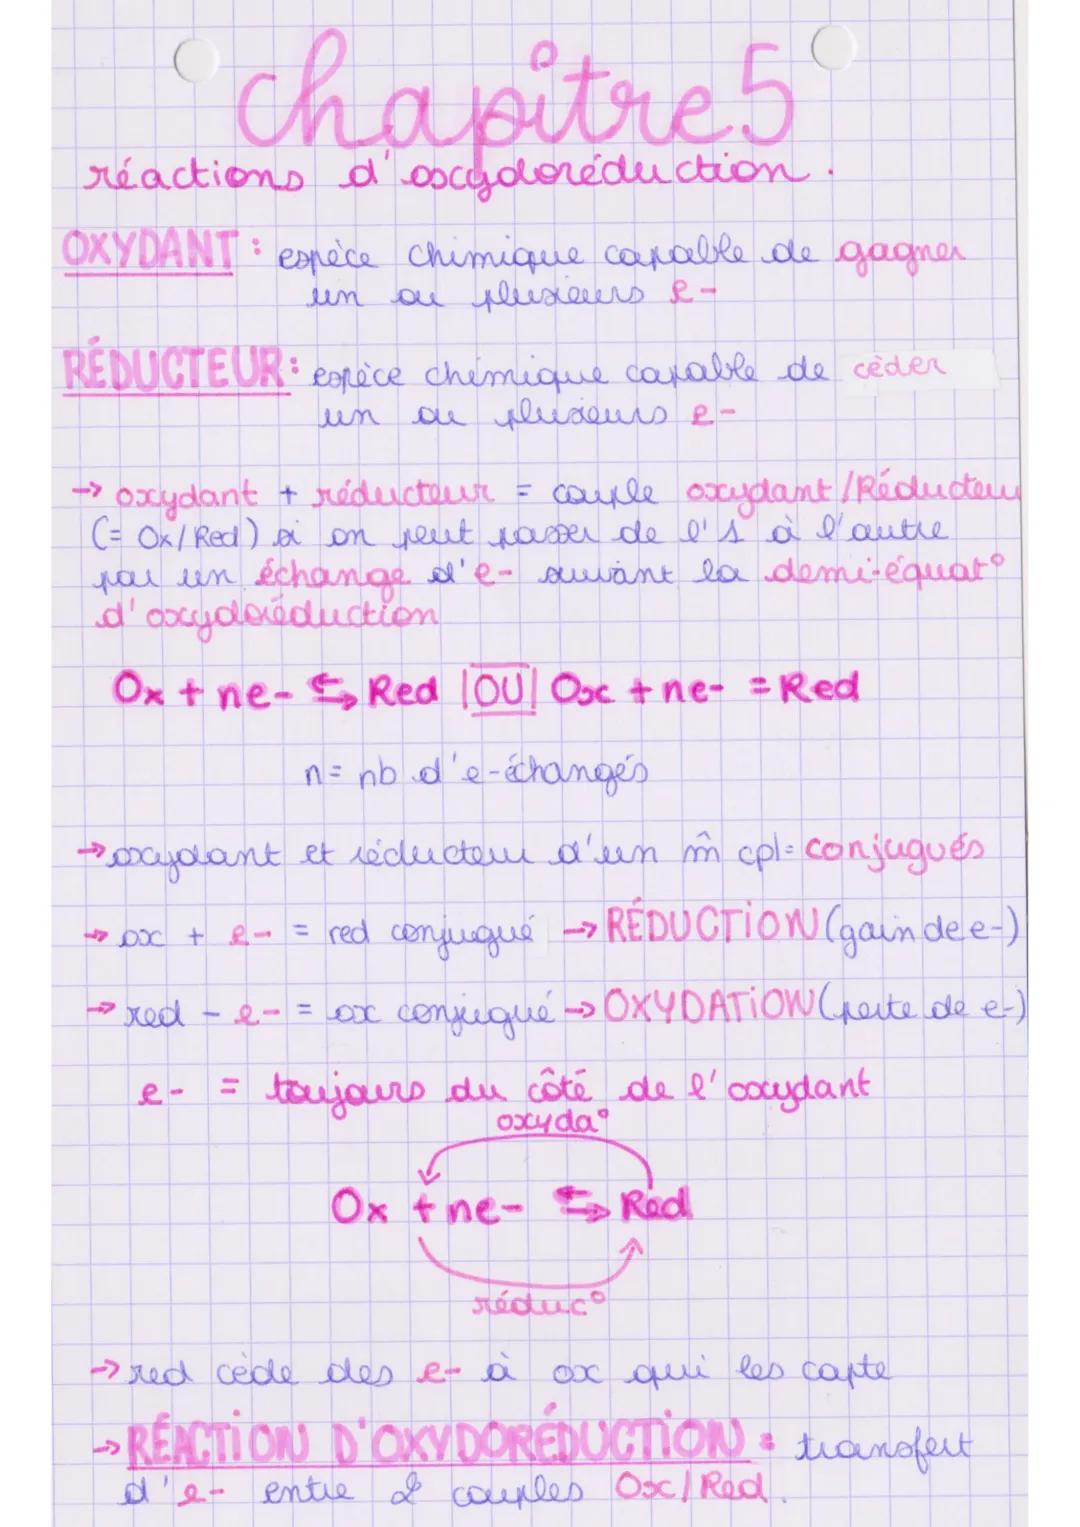 chapitre 5
réactions d'oxydoréduction.
OXYDANT : espèce chimique capable de gagner
un ou plusieurs e-
RÉDUCTEUR : espèce chimique capable de céder
un ou plusieurs e-
→ oxydant + réducteur = couple oxydant/Réducteur
(= Ox/Red) si on peut passer de l'1 à l'autre
par un échange d'e- suivant la demi-équat°
d'oxydoréduction
Ox + ne- ⇆ Red |OU| Ox + ne- = Red
n = nb d'e- échangés
→ oxydant et réducteur d'un m̂ cpl = conjugués
→ ox + e- = red conjugué → RÉDUCTION (gain de e-)
→ red - e- = ox conjugué → OXYDATION (perte de e-)
e- = toujours du côté de l'oxydant
oxyda°
Ox + ne- ⇆ Red
réduc°
→ red cède des e- à ox qui les capte
→ RÉACTION D'OXYDORÉDUCTION : transfert
d'e- entre 2 couples Ox/Red.